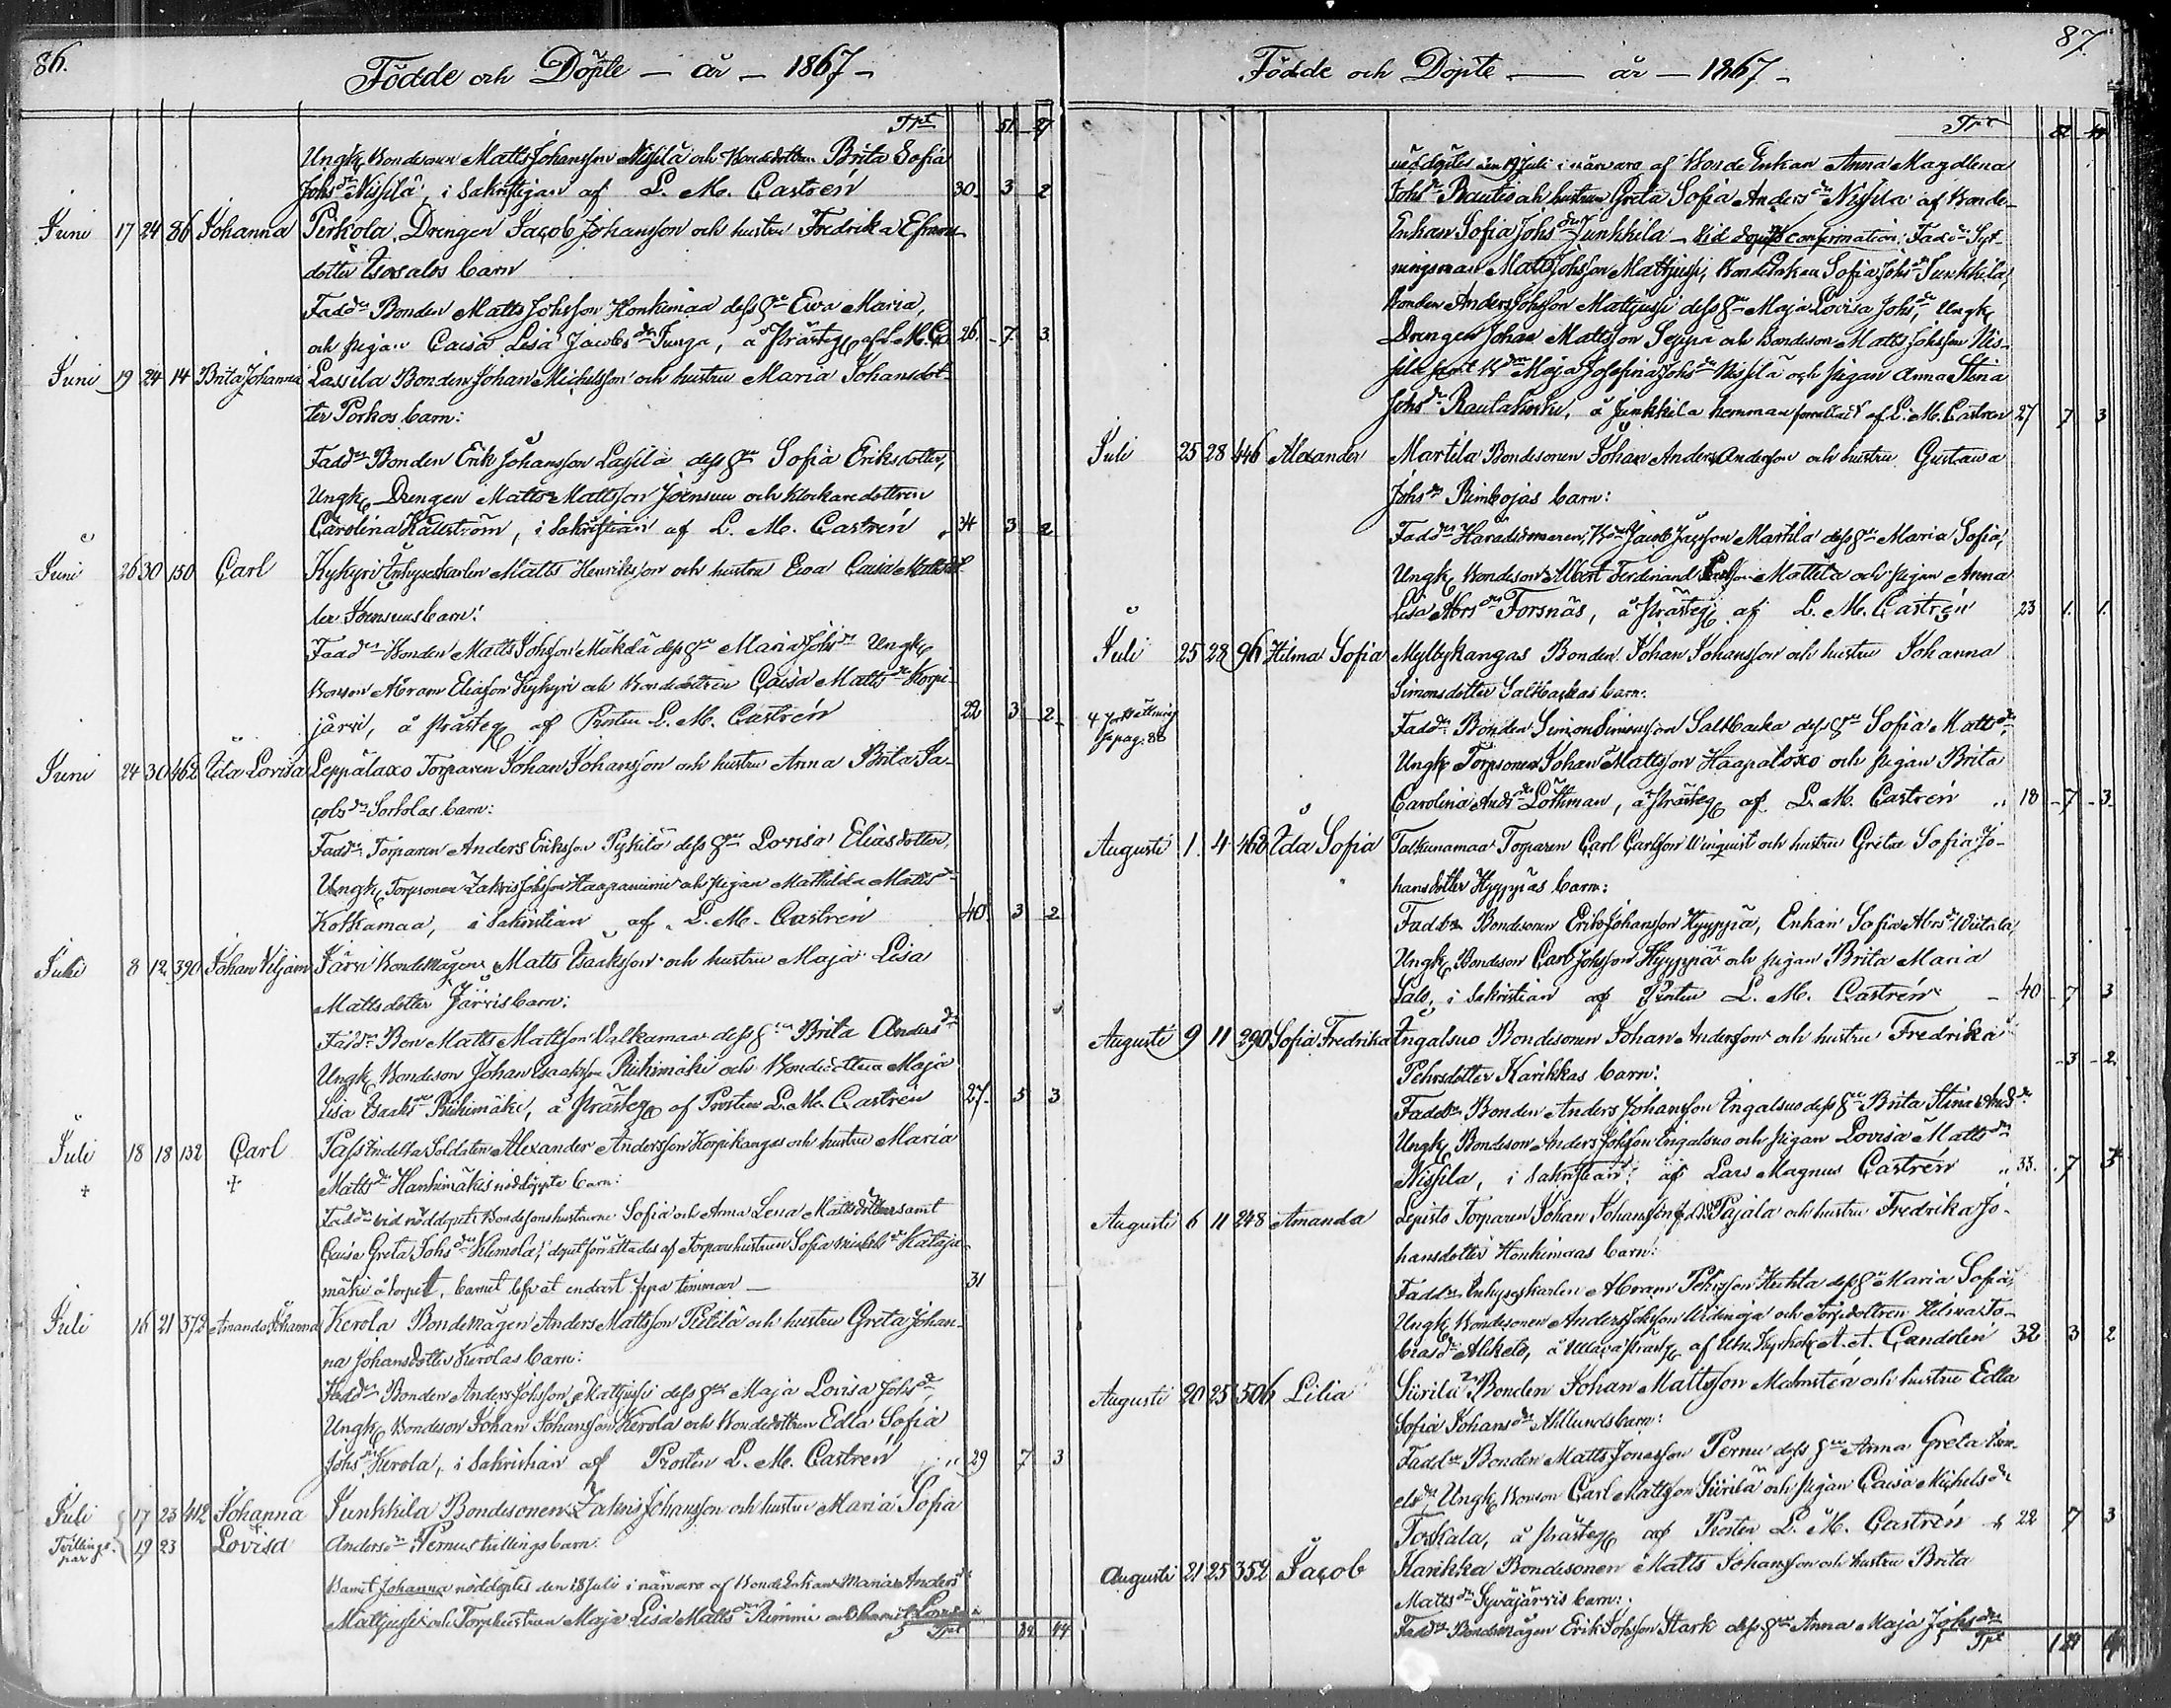 86.
Födde och Döpte — år — 1867 —
Tpt 51 27
Ungk Bondesonen Matts Johansson Nissilä och Bondedottren Brita Sofia
Johsdr Nissilä, i Sakristijan af L. M. Castrén 30 3 2
Juni 17 24 86 Johanna Perkola Drengen Jacob Johansson och hustru Fredrika
dotter barn
Faddr Bonden Matts Johsson Honkimaa dess Eva Maria,
och pigan Caisa Lisa Jacobsdr Junga, å Prästeg af L. M. C. 26 7 3
Juni 19 24 14 Brita Johanna Lassila Bonden Johan Michelsson och hustru Maria Johansdot-
ter Porkos barn:
Faddr Bonden Erik Johansson Lassila dess Sofia Eriksdotter,
Ungk Drengen Matts Mattsson Joensuu och Klockaredottren
Carolina Källström, i Sakristian af L. M. Castrén 34 3 2
Juni 26 30 150 Carl Kykyri Inhyseskarlen Matts Henriksson och hustru Eva Caisa Mattsdot-
ter Joensuus barn:
Faddr Bonden Matts Johsson dess Maria Johsdr Ungk
Abram Eliasson Kykyri och Bondedottren Caisa Mattsdr Korpi-
järvi, å Prästeg af Prosten L. M. Castrén 22 3 2
Juni 24 30 462 Ida Lovisa Leppälaxo Torparen Johan Johansson och hustru Anna Brita Ja-
cobsdr Sorholas barn:
Faddr Torparen Anders Eriksson dess Lovisa Eliasdotter,
Ungk Torpsonen Zakris Johsson Haapaniemi och pigan Mathilda Mattsdr
Kotkamaa, i Sakristian af L. M. Castrén 40 3 2
Juli 8 12 390 Johan Viljam Järvi Bondemågen Matts Isaksson och hustru Maja Lisa
Mattsdotter Järvis barn:
Faddr Matts Mattsson Valkamaa dess Brita Andersdr
Ungk Bondeson Johan Isaaksson Riihimäki och Bondedottren Maja
Lisa Isaaksdr Riihimäki, å Prästeg af Prosten L. M. Castrén 27 5 3
Juli 18 18 132 Carl Indelta Soldaten Alexander Andersson Korpikangas och hustru Maria
+ + Mattsdr Hanhimäkis nöddöpte barn:
Faddr vid nöddopet Bondesonshustrurne Sofia och Anna Lena Mattsdöttrar samt
Caisa Greta Johsdr Klemola, dopet förrättades af Torparehustrun Sofia Michelsdr Kataja-
mäki å torpet, barnet lefvat endast timmar — 31
Juli 16 21 372 Amanda Johanna Kerola Bondemågen Anders Mattsson Pietilä och hustru Greta Johan-
na Johansdotter Kerolas barn:
Faddr Bonden Anders Johsson Mattjussi dess Maja Lovisa Johsdr
Ungk Bondeson Johan Johansson Kerola och Bondedottren Edla Sofia
Johsdr Kerola, i Sakristian af Prosten L. M. Castrén 29 7 3
Juli 17 23 412 Johanna Junkkila Bondesonen Zakris Johansson och hustru Maria Sofia
Tvillings-par 19 23 Lovisa Andersdr Pernus tvillingsbarn.
Barnet Johanna nöddöptes den 18 Juli i närvaro af Bonde Enkan Maria Andersdr
Mattjussi och Torphustrun Maja Lisa Mattsdr Niemi och barnet Lovisa
Tpt 82 44
87.
Födde och Döpte — år — 1867 —
Tpt 82 44
nöddöptes den 19 Juli i närvaro af Bonde Enkan Anna Magdlena
Johsdr Rautio och hustrun Greta Sofia Andersdr Nissilä af Bonde-
Enkan Sofia Johsdr Junkkila — Vid dopets confirmation: Faddr Syt-
ningsman Matts Johsson Mattjussi, Bonde Enkan Sofia Johsdr Junkkila,
Bonden Anders Johsson Mattjussi dess Maja Lovisa Johsdr, Ungk
Drengen Johan Mattsson Seppä och Bondeson Matts Johsson Nis-
silä samt Maja Josefina Johsdr Nissilä och pigan Anna Stina
Johsdr Rautakoski, å Junkkila hemman förrättadt af L. M. Castrén 27 7 3
Juli 25 28 446 Alexander Martila Bondesonen Johan Anders Andersson och hustru Gustava
Johsdr Rimbojas barn:
Faddr Häradsdomaren, Jacob Martila dess Maria Sofia,
Ungk Bondeson Albert Ferdinand Mattila och pigan Anna
Lisa Abrsdr Forsnäs, å Prästeg af L. M. Castrén 23 1. 1.
Juli 25 28 96 Hilma Sofia Myllykangas Bonden Johan Johansson och hustru Johanna
Simonsdotter Saltbackas barn:
4 Fortsättning
pag. 88
Faddr Bonden Simon Simonsson Saltbacka dess Sofia Mattsdr
Ungk Torpsonen Johan Mattsson Haapaloxo och pigan Brita
Carolina Andsdr Löthman, å Prästeg af L. M. Castrén 18 7 3
Augusti 1 4 462 Ida Sofia Talkunamaa Torparen Carl Carlsson Winquist och hustru Greta Sofia Jo-
hansdotter Hyyppäs barn:
Faddr Bondesonen Erik Johansson Hyyppä, Enkan Sofia Abrsdr Wiitala,
Ungk Bondeson Carl Johsson Hyyppä och pigan Brita Maria
Salo, i Sakristian af Prosten L. M. Castrén 40 7 3
Augusti 9 11 290 Sofia Fredrika Ingalsuo Bondesonen Johan Andersson och hustru Fredrika
Pehrsdotter Karikkas barn: 3 2
Faddr Bonden Anders Johansson Ingalsuo dess Brita Stina Andsdr
Ungk Bondeson Anders Johsson Ingalsuo och pigan Lovisa Mattsdr
Nissilä, i Sakristian af Lars Magnus Castrén 33. 7 3
Augusti 6 11 248 Amanda Lepistö Torparen Johan Johansson Pajala och hustru Fredrika Jo-
hansdotter Honkimaas barn:
Faddr Inhyseskarlen Abram Pehrsson Huhta dess Maria Sofia,
Ungk Bondesonen Anders Johsson och Torpdottren Helina To-
biasdr Aliketo, å Prästg af A. A. Candelin 32 3 2
Augusti 20 25 506 Lilia Siirilä Bonden Johan Mattsson Malmstén och hustru Edla
Sofia Johansdr Ahllunds barn:
Faddr Bonden Matts Jonasson Pernu dess Anna Greta
Ungk Carl Mattsson Siirilä och pigan Caisa Michelsdr
Toskala, å Prästeg af Prosten L. M. Castrén 22 7 3
Augusti 21 25 352 Jacob Karikka Bondesonen Matts Johansson och hustru Brita
Mattsdr Syväjärvis barn:
Faddr Bondemågen Erik Johsson Stark dess Anna Maja Johsdr
Tpt